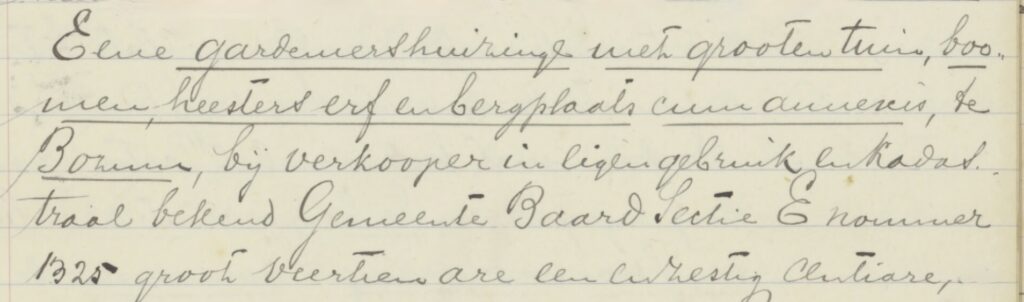 Eene gardeniershuizinge met grooten tuin, boo-
men, heesters erf en bergplaats cum annexis, te
Bozum, bij verkooper in eigen gebruik en kadas-
traal bekend Gemeente Baard Sectie E nommer
1325 groot veertien are een en zestig centiare,